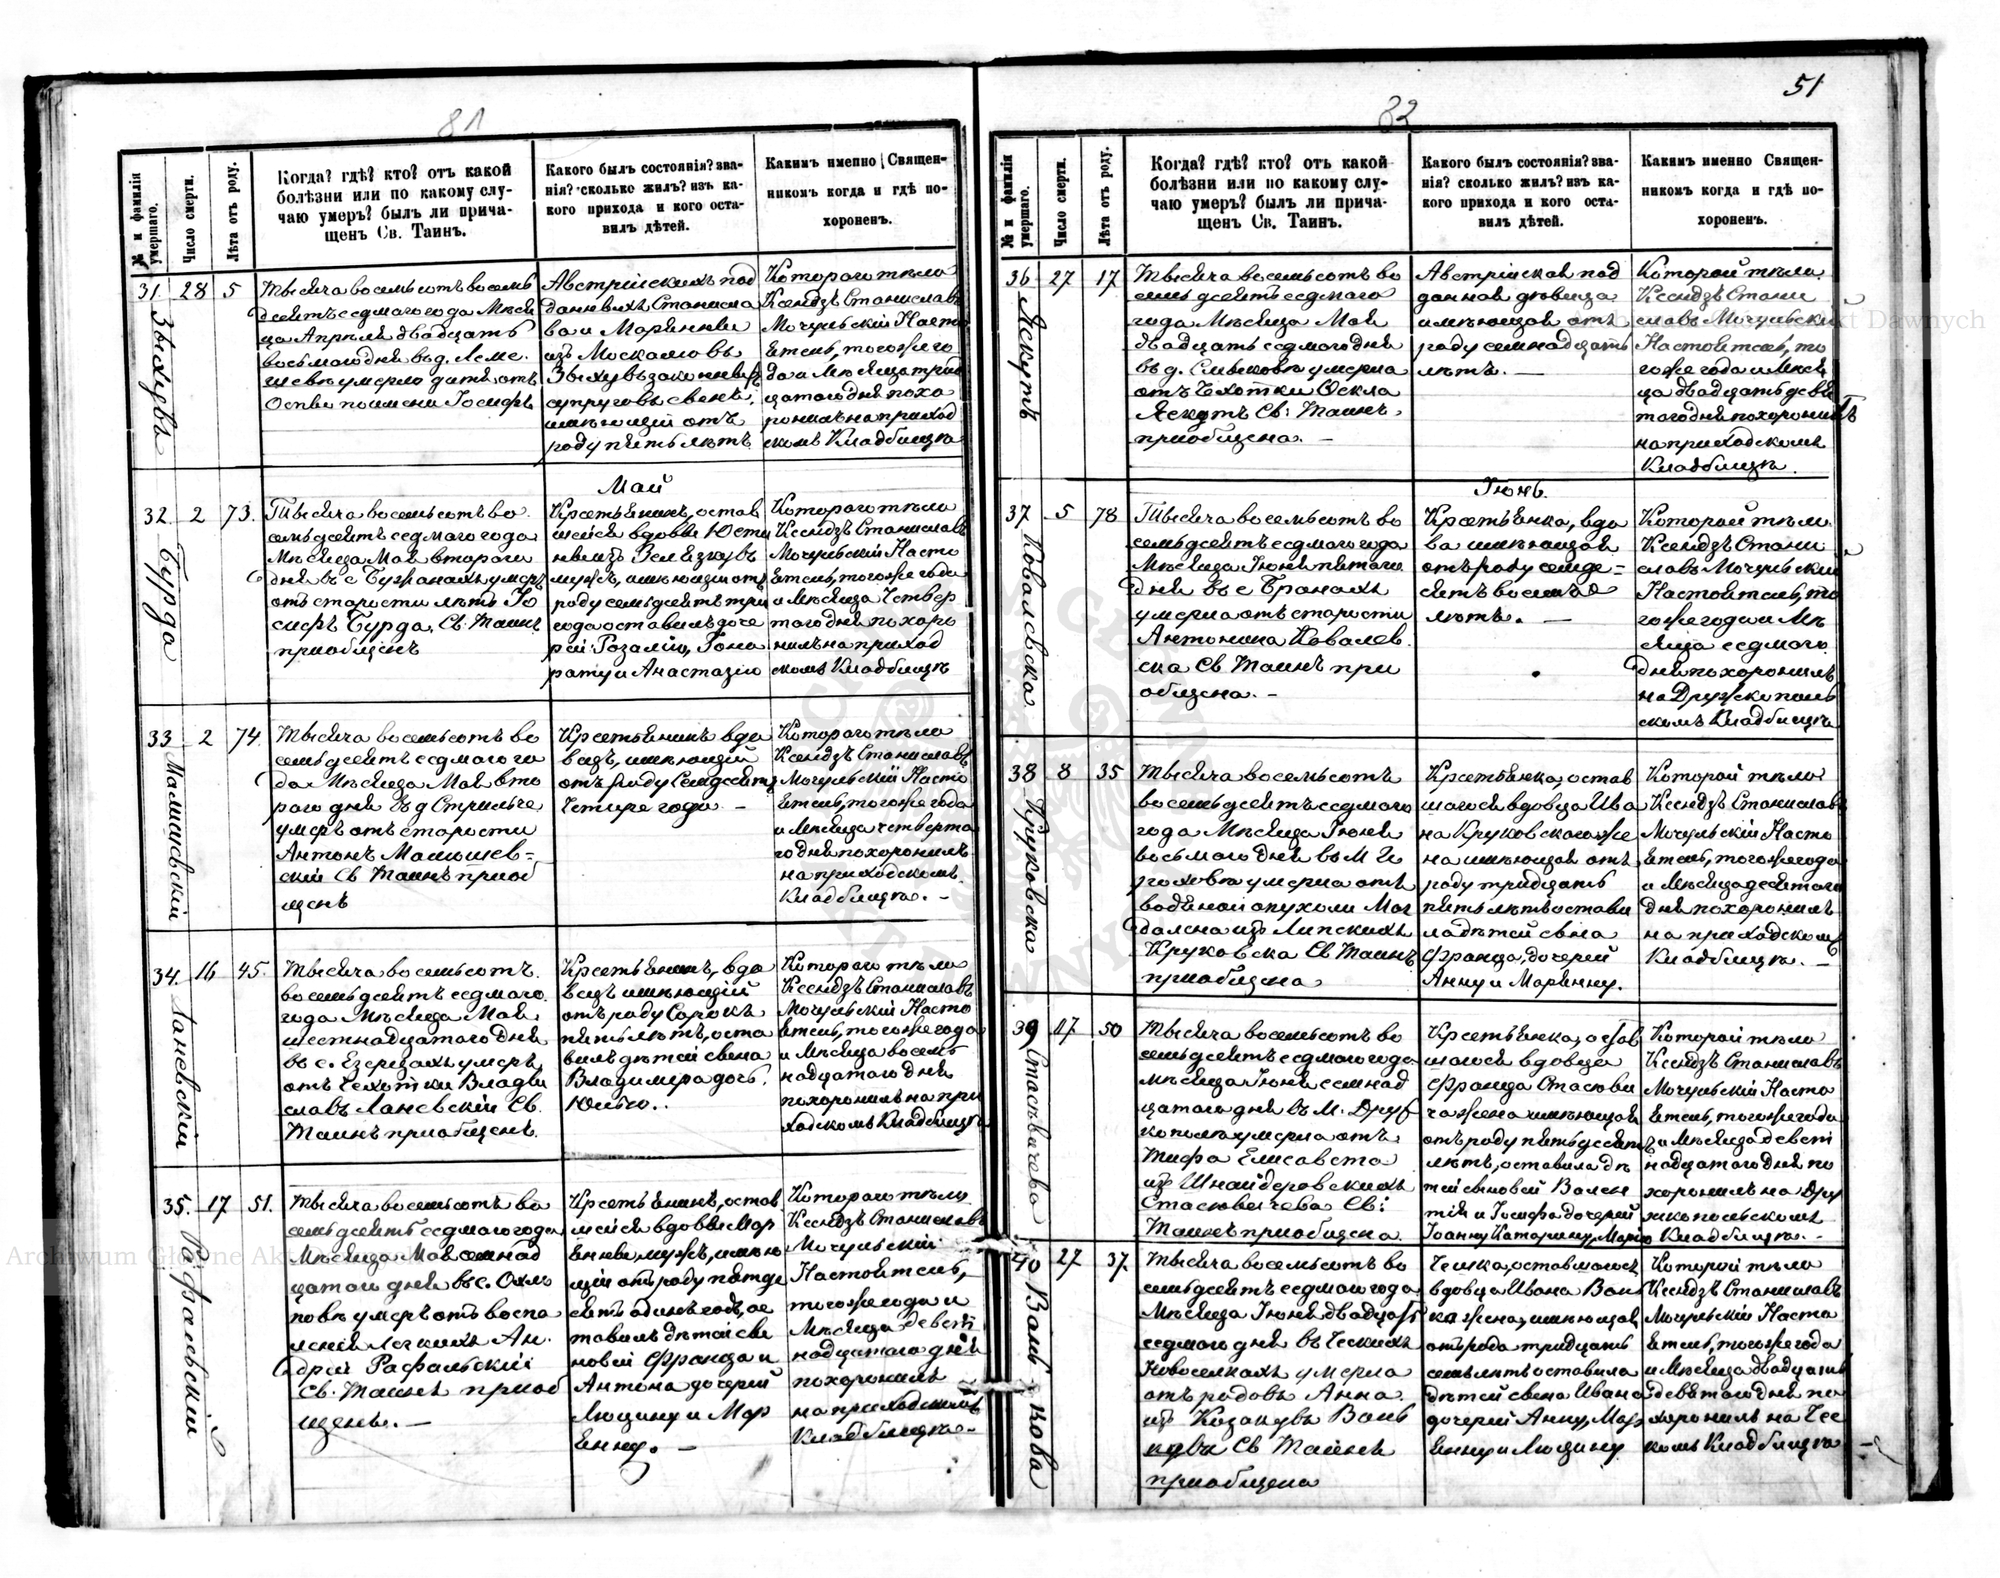 81
№ и фамилія умершаго.
Число смерти.
Лѣта отъ роду.
Когда? гдѣ? кто? отъ какой
болѣзни или по какому слу-
чаю умеръ? былъ ли прича-
щенъ Св. Таинъ.
Какого былъ состоянія? зва-
нія? сколько жилъ? изъ ка-
кого прихода и кого оста-
вилъ дѣтей.
Какимъ именно Священ-
никомъ когда и гдѣ по-
хороненъ.
31. 28 5
Тысяча восемьсотъ восемь
десятъ седмаго года Мѣся
ца Апрѣля двадцать
восьмаго дня въ д.
умерло дитя отъ
Оспы по имени Іосифъ
Австрійскихъ под
данныхъ Станисла
ва и Маріянны
изъ Москалювъ
законныхъ
супруговъ сынъ,
имѣющій отъ
роду пять лѣтъ
Котораго тѣло
Ксендзъ Станиславъ
Мочульскій Насто
ятель, того же го
да и Мѣсяца трид
цатаго дня похо
ронилъ на приход
скомъ Кладбищѣ
Май
32. 2 73.
Бурда
Тысяча восемьсотъ во
семьдесятъ седмаго года
Мѣсяца Мая втораго
дня въ с. Бужанахъ умеръ
отъ старости лѣтъ Іо
сифъ Бурда, Св. Таинъ
пріобщенъ
Крестьянинъ, остав
шейся вдовы Юсти
ны изъ
мужъ, имѣющій отъ
роду семьдесятъ три
года оставилъ доче
рей: Розалію, Гоно
рату и Анастазію
Котораго тѣло
Ксендзъ Станиславъ
Мочульскій Насто
ятель, того же года
и Мѣсяца Четвер
таго дня похоро
нилъ на приход
скомъ Кладбищѣ
33 2 74
Малишевскій
Тысяча восемьсотъ во
семьдесятъ седмаго го
да Мѣсяца Мая вто
раго дня въ д Стрильче
умеръ отъ старости
Антонъ Малишев=
скій Св Таинъ приоб
щенъ
Крестьянинъ вдо
вецъ, имѣющій
отъ роду Семдесятъ
Четыре года. –
Котораго тѣло
Ксендзъ Станиславъ
Мочульскій Насто
ятель, того же года
и Мѣсяца четверта
го дня похоронилъ
на приходскомъ
Кладбищѣ. –
34. 16 45.
Ланевскій
Тысяча восемьсотъ
восемьдесятъ седмаго
года Мѣсяца Мая
шестнадцатаго дня
въ с. Езерцахъ умеръ
отъ Чехотки Влади
славъ Ланевскій Св.
Таинъ приобщенъ.
Крестьянинъ, вдо
вецъ имѣющій
отъ роду Сорокъ
пять лѣтъ, оста
вилъ дѣтей сына
Владимера дочь.
Юлію.
Котораго тѣло
Ксендзъ Станиславъ
Мочульскій Насто
ятель, того же года
и Мѣсяца восем
надцатаго дня
похоронилъ на при
ходскомъ Кладбищѣ
35. 17 51.
Рафальскій
Тысяча восемьсотъ во
семьдесятъ седмаго года
Мѣсяца Мая семнад
цатаго дня въ с.
умеръ отъ воспа
ленія Легкихъ Ан
дрей Рафальскій
Св. Таинъ приоб
щенъ. –
Крестьянинъ, остав
шейся вдовы Мар
іянны мужъ, имѣю
щій отъ роду пятьде
сятъ одинъ годъ, ос
тавилъ дѣтей сы
новей Франца и
Антона дочерей
Люцину и Мар
іянну. –
Котораго тѣло
Ксендзъ Станиславъ
Мочульскій
Настоятель,
того же года и
Мѣсяца девят
надцатаго дня
похоронилъ
на приходскомъ
Кладбищѣ. –
51
82
№ и фамилія умершаго.
Число смерти.
Лѣта отъ роду.
Когда? гдѣ? кто? отъ какой
болѣзни или по какому слу-
чаю умеръ? былъ ли прича-
щенъ Св. Таинъ.
Какого былъ состоянія? зва-
нія? сколько жилъ? изъ ка-
кого прихода и кого оста-
вилъ дѣтей.
Какимъ именно Священ-
никомъ когда и гдѣ по-
хороненъ.
36 27 17
Яскутъ
Тысяча восемьсотъ во
семьдесятъ седмаго
года Мѣсяца Мая
двадцать седмаго дня
въ д. умерла
отъ Чехотки Фекла
Яскутъ Св. Таинъ
приобщена. –
Австрійская под
данная дѣвица
имѣющая отъ
роду семнадцать
лѣтъ. –
Которой тѣло
Ксендзъ Стани
славъ Мочульскій
Настоятель, то
го же года и Мѣся
ца двадцать девя
таго дня похоронилъ
на приходскомъ
Кладбищѣ.
Іюнь.
37 5 78
Ковалевска
Тысяча восемьсотъ во
семьдесятъ седмаго года
Мѣсяца Іюня пятаго
дня въ с Бранахъ
умерла отъ старости
Антонина Ковалев
ска Св Таинъ при
общена. –
Крестьянка, вдо
ва имѣющая
отъ роду семде=
сятъ восемь
лѣтъ. –
Которой тѣло
Ксендзъ Стани
славъ Мочульскій
Настоятель, то
го же года и Мѣ
сяца седмаго
дня похоронилъ
на Дружкополь
скомъ Кладбищѣ
38 8 35
Круковска
Тысяча восемьсотъ
восемьдесятъ седмаго
года Мѣсяца Іюня
восьмаго дня въ М Го
роховѣ умерла отъ
водяной опухоли Маг
далена изъ Липскихъ
Круковска Св Таинъ
приобщена
Крестьянка, остав
шагося вдовца Ива
на Круковского же
на имѣющая отъ
роду тридцать
пять лѣтъ остави
ла дѣтей сына
Франца, дочерей
Анну и Маріянну.
Которой тѣло
Ксендзъ Станиславъ
Мочульскій Насто
ятель, того же года
и Мѣсяца десятаго
дня похоронилъ
на приходскомъ
Кладбищѣ. –
39 17 50
Стасевичева
Тысяча восемьсотъ во
семьдесятъ седмаго года
Мѣсяца Іюня семнад
цатаго дня въ М. Друж
кополѣ умерла отъ
Тифа Елисавета
изъ Шнайдеровскихъ
Стасювичева Св:
Таинъ приобщена.
Крестьянка, остав
шагося вдовца
Франца Стасюви
ча жена имѣющая
отъ роду пятьдесятъ
лѣтъ, оставила дѣ
тей сыновей Вален
тія и Іосифа дочерей
Іоанну Катарину, Марію
Которой тѣло
Ксендзъ Станиславъ
Мочульскій Насто
ятель, того же года
и Мѣсяца девят
надцатаго дня по
хоронилъ на Дру
жкопольскомъ
Кладбищѣ. –
40 27 37
Тысяча восемьсотъ во
семьдесятъ седмаго года
Мѣсяца Іюня двадцать
седмаго дня въ Ческихъ
Новоселкахъ умерла
отъ родовъ Анна
изъ
Св Таинъ
приобщена
Чешка, оставшагося
вдовца Ивана
жена, имѣющая
отъ рода тридцать
семь лѣтъ оставила
дѣтей сына Ивана
дочерей Анну, Мар
іянну и Люцину
Которой тѣло
Ксендзъ Станиславъ
Мочульскій Насто
ятель, того же года
и Мѣсяца двадцать
девятаго дня по
хоронилъ на Чес
комъ Кладбищѣ
Archiwum Główne Akt Dawnych